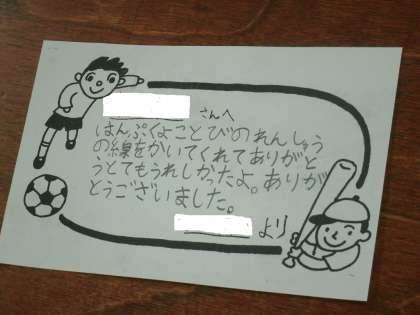 さんへ
はんぷくよことびのれんしゅう
の線をかいてくれてありがと
うとてもうれしかたよ。ありが
とうございました。
より